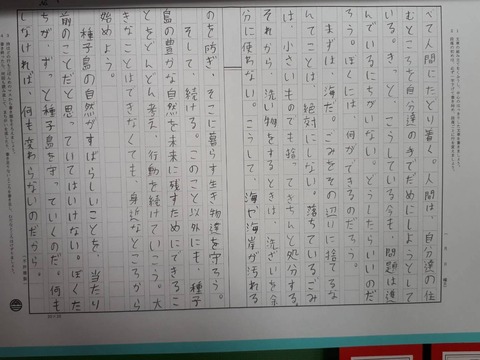 べて人間にたどり着く。人間は、自分達の住
むところを自分達の手でだめにしようとして
いる。きっと、こうしている今も、問題は進
んでいるにちがいない。どうしたらいいのだ
ろう。ぼくには、何ができるのだろう。
まずは、海だ。ごみをその辺りに捨てるな
んてことは、絶対にしない。落ちているごみ
は、小さいものでも拾ってきちんと処分する。
それから、洗い物をするときは、洗ざいを余
分に使わない。こうして、海や海岸が汚れる
のを防ぎ、そこに暮らす生き物達を守ろう。
そして、続ける。このこと以外にも、種子
島の豊かな自然を未来に残すためにできるこ
とをどんどん考え、行動を続けていこう。大
きなことはできなくても、身近なところから
始めよう。
種子島の自然がすばらしいことを、当たり
前のことだと思っていてはいけない。ぼくた
ちが、ずっと種子島を守っていくのだ。何も
しなければ、何も変わらないのだから。
20×20